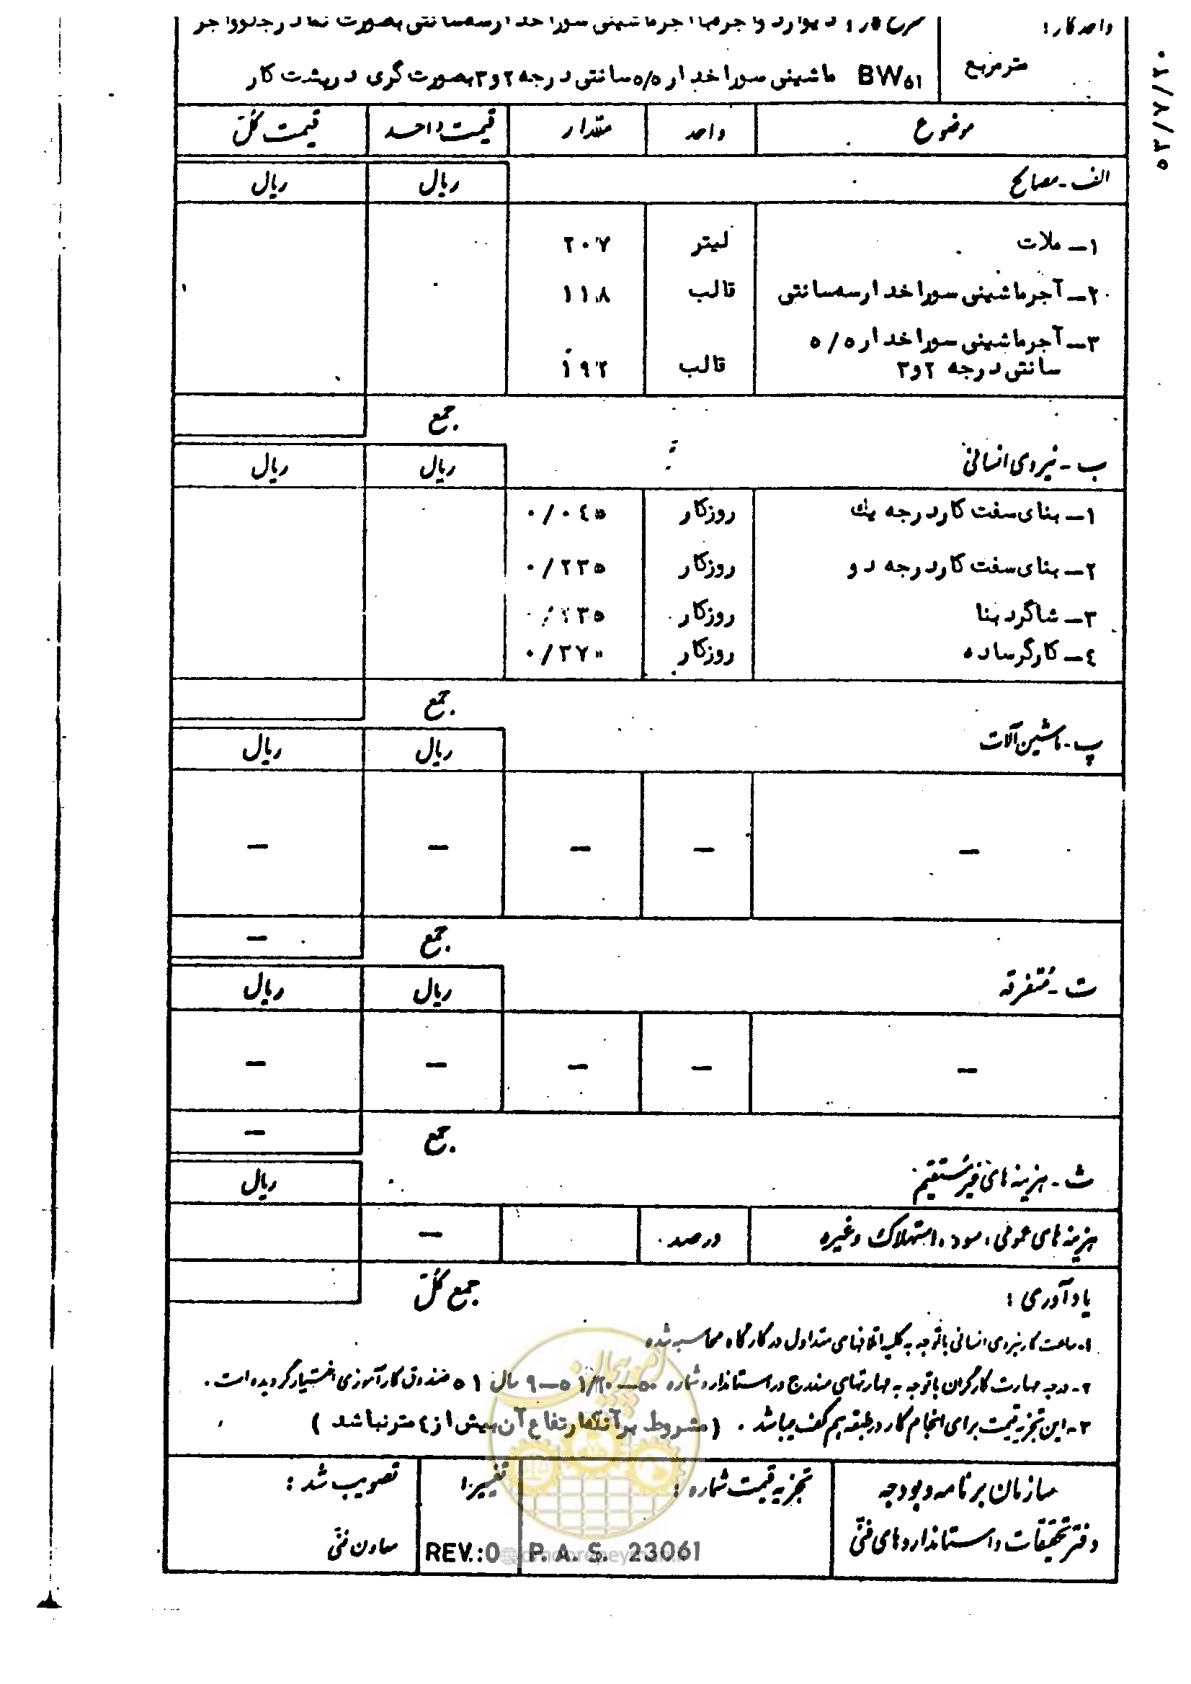 واحد کار:
شرح کار: دیوار دو آجره با آجر ماشینی سوراخدار سه سانتی بصورت نما در جلو و آجر
متر مربع
ماشینی سوراخدار ۵/۵ سانتی درجه ۲ و ۳ بصورت گری در پشت کار BW₆₁
۵۳/۷/۲۰
موضوع واحد مقدار قیمت واحد قیمت کل
الف - مصالح ریال ریال
۱- ملات لیتر ۲۰۷
۲- آجر ماشینی سوراخدار سه سانتی قالب ۱۱۸
۳- آجر ماشینی سوراخدار ۵/۵
سانتی درجه ۲ و ۳ قالب ۱۹۲
جمع
ب - نیروی انسانی ریال ریال
۱- بنای سفت کار درجه یک روزکار ۰/۰۴۵
۲- بنای سفت کار درجه دو روزکار ۰/۲۳۵
۳- شاگرد بنا روزکار
۴- کارگر ساده روزکار
جمع
پ - ماشین آلات ریال ریال
— — — — —
جمع —
ت - متفرقه ریال ریال
— — — — —
جمع —
ث - هزینه های غیرمستقیم ریال
هزینه های عمومی، سود، استهلاک وغیره درصد —
جمع کل
یادآوری:
۱- ساعت کار نیروی انسانی با توجه به کلیه اتلافهای متداول در کارگاه محاسبه شده
۲- درجه مهارت کارگران با توجه به مهارتهای مندرج در استاندارد شماره سال ۵۱ صندوق کارآموزی اختیار گردیده است.
۳- این تجزیه قیمت برای انجام کار در طبقه هم کف میباشد. (مشروط بر آنکه ارتفاع آن بیش از ۴ متر نباشد)
سازمان برنامه و بودجه
دفتر تحقیقات و استانداردهای فنی
تجزیه قیمت شماره:
P. A. S. 23061
تغییر:
REV.:0
تصویب شد:
معاون فنی